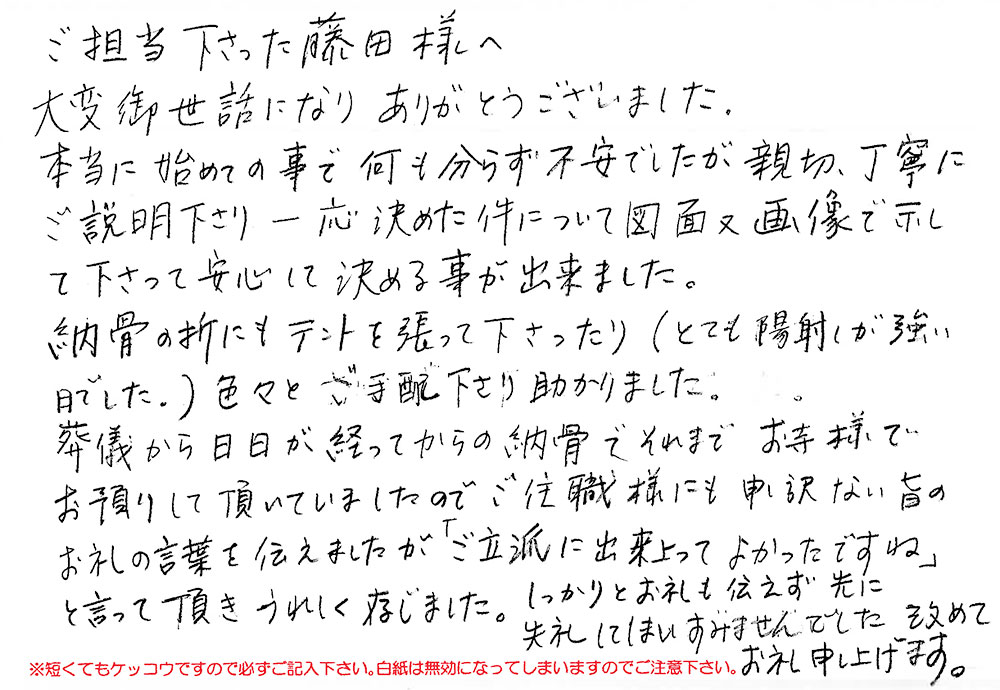 ご担当下さった藤田様へ
大変御世話になりありがとうございました.
本当に始めての事で何も分らず不安でしたが親切、丁寧に
ご説明下さり一応決めた件について図面又画像で示し
て下さって安心して決める事が出来ました。
納骨の折にもテントを張って下さったり(とても陽射しが強い
日でした.)色々とご手配下さり助かりました。
葬儀から日日が経ってからの納骨でそれまでお寺様で
お預りして頂いていましたのでご住職様にも申し訳ない旨の
お礼の言葉を伝えましたが「ご立派に出来上ってよかったですね」
と言って頂きうれしく存じました。しっかりとお礼も伝えず先に
失礼してしまいすみませんでした 改めて
お礼申し上げます。
※短くてもケッコウですので必ずご記入下さい。白紙は無効になってしまいますのでご注意下さい。